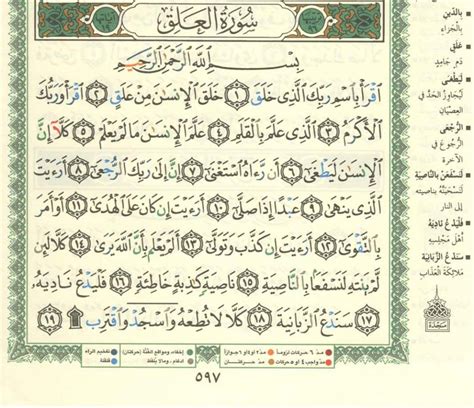 سُورَةُ العَلَق
بِسْمِ اللَّهِ الرَّحْمَٰنِ الرَّحِيمِ
اقْرَأْ بِاسْمِ رَبِّكَ الَّذِي خَلَقَ ١ خَلَقَ الْإِنسَٰنَ مِنْ عَلَقٍ ٢ اقْرَأْ وَرَبُّكَ
الْأَكْرَمُ ٣ الَّذِي عَلَّمَ بِالْقَلَمِ ٤ عَلَّمَ الْإِنسَٰنَ مَا لَمْ يَعْلَمْ ٥ كَلَّا إِنَّ
الْإِنسَٰنَ لَيَطْغَىٰ ٦ أَن رَّءَاهُ اسْتَغْنَىٰ ٧ إِنَّ إِلَىٰ رَبِّكَ الرُّجْعَىٰ ٨ أَرَءَيْتَ
الَّذِي يَنْهَىٰ ٩ عَبْدًا إِذَا صَلَّىٰ ١٠ أَرَءَيْتَ إِن كَانَ عَلَى الْهُدَىٰ ١١ أَوْ أَمَرَ
بِالتَّقْوَىٰ ١٢ أَرَءَيْتَ إِن كَذَّبَ وَتَوَلَّىٰ ١٣ أَلَمْ يَعْلَم بِأَنَّ اللَّهَ يَرَىٰ ١٤ كَلَّا لَئِن
لَّمْ يَنتَهِ لَنَسْفَعًا بِالنَّاصِيَةِ ١٥ نَاصِيَةٍ كَٰذِبَةٍ خَاطِئَةٍ ١٦ فَلْيَدْعُ نَادِيَهُ
١٧ سَنَدْعُ الزَّبَانِيَةَ ١٨ كَلَّا لَا تُطِعْهُ وَاسْجُدْ وَاقْتَرِب ۩ ١٩
بالدِّينِ
بالجَزاءِ
عَلَقٍ
دَمٍ جامِدٍ
لَيَطْغى
لَيُجاوِزُ الحَدَّ في
العِصْيانِ
الرُّجْعى
الرُّجُوعَ في
الآخرة
لنسفعن بالناصية
لَنَسْحَبَنَّهُ بناصيته
إلى النار
فليدع ناديه
أهل مجلسه
سندع الزبانية
ملائكة العذاب
مد ٦ حركات لزوماً
مد ٢ أو ٤ أو ٦ جوازاً
إخفاء، ومواقع الغُنَّة (حركتان)
تفخيم الراء
مد حركتان
ادغام، وما لا يُلفَظ
قلقلة
٥٩٧